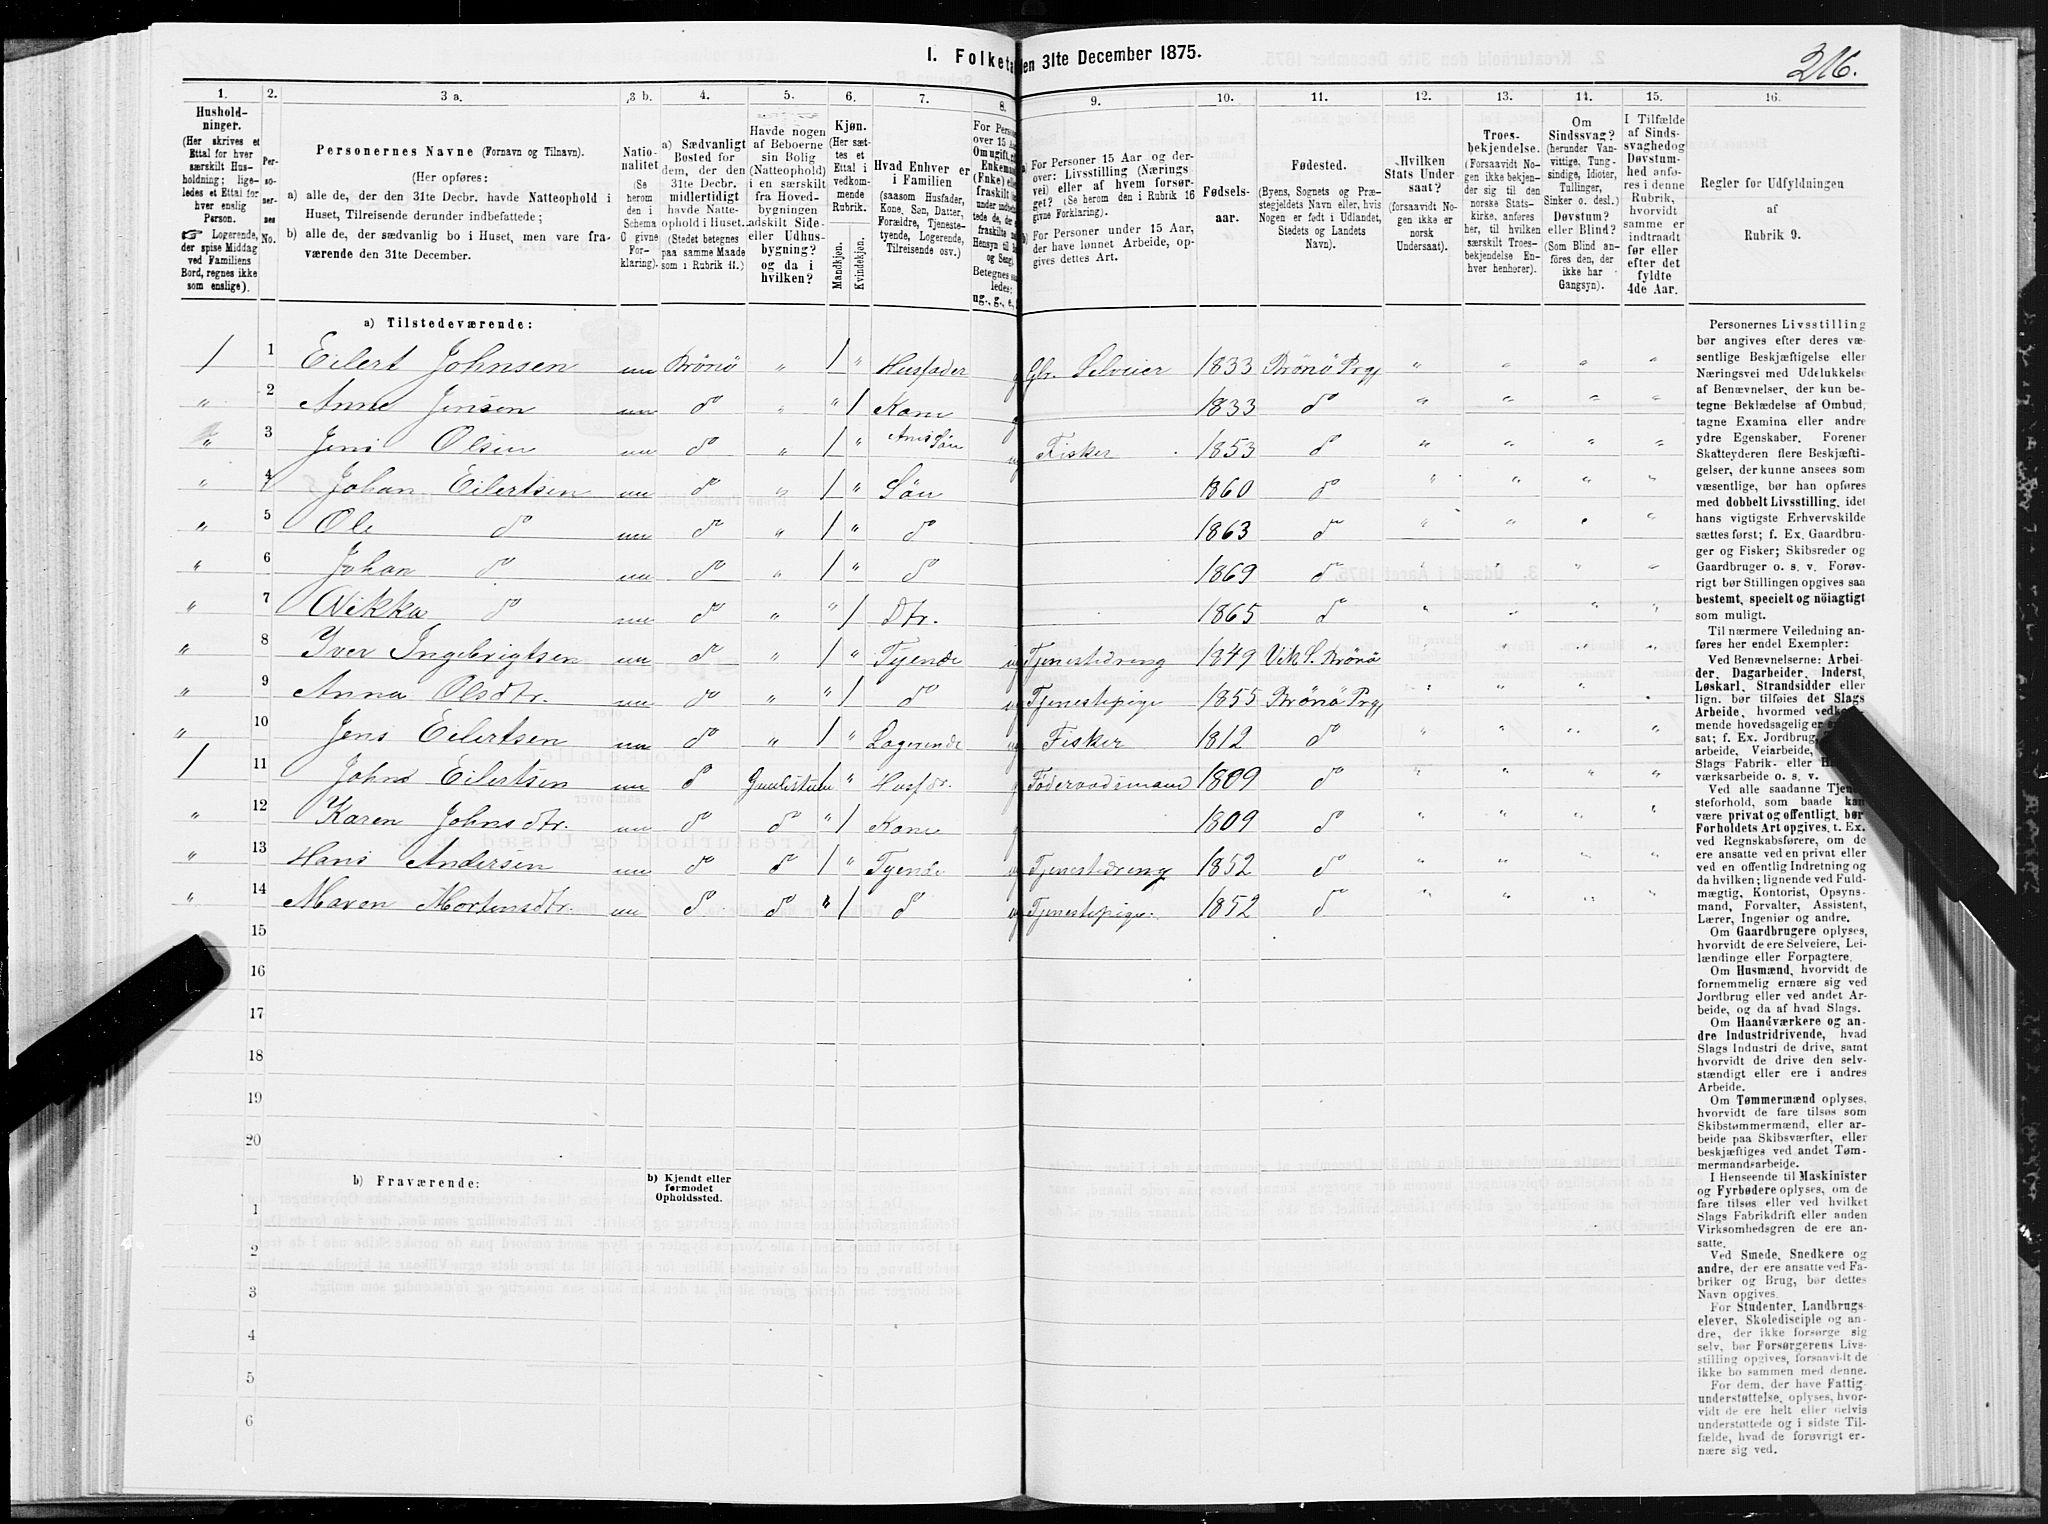 I. Folketæ en 31te December 1875.
216.
1. 2. 3 a. 3 b. 4. 5. 6. 7. 8. 9. 10. 11. 12. 13. 14. 15. 16.
Hushold-
ninger.
(Her skrives et
Ettal for hver
særskilt Hus-
holdning; lige-
ledes et Ettal for
hver enslig
Person.
☞ Logerende,
der spise Middag
ved Familiens
Bord, regnes ikke
som enslige).
Per-
so-
ner-
nes
No.
Personernes Navne (Fornavn og Tilnavn).
(Her opføres:
a) alle de, der den 31te Decbr. havde Natteophold i
Huset, Tilreisende derunder indbefattede;
b) alle de, der sædvanlig bo i Huset, men vare fra-
værende den 31te December.
Natio-
nalitet
(Se
herom
den i
Schema
C givne
For-
klaring).
a) Sædvanligt
Bosted for
dem, der den
31te Decbr.
midlertidigt
havde Natte-
ophold i Huset.
(Stedet betegnes
paa samme Maade
som i Rubrik 11.)
Havde nogen
af Beboerne
sin Bolig
(Natteophold)
i en særskilt
fra Hoved-
bygningen
adskilt Side-
eller Udhus-
bygning?
og da i
hvilken?
Kjøn.
(Her sæt-
tes et
Ettal i
vedkom-
mende
Rubrik.
Mandkjøn.
Kvindekjøn.
Hvad Enhver er
i Familien
(saasom Husfader,
Kone, Søn, Datter,
Forældre, Tjeneste-
tyende, Logerende,
Tilreisende osv.)
For Person
over 15 Aar
Om ugift, g
Enkeman
(Fnke) elle
fraskilt
a) For Personer 15 Aar og der-
over: Livsstilling (Nærings
vei) eller af hvem forsør-
get? (Se herom den i Rubrik 16
givne Forklaring).
b) For Personer under 15 Aar,
der have lønnet Arbeide, op-
gives dettes Art.
Fødsels-
aar.
Fødested.
(Byens, Sognets og Præ-
stegjeldets Navn eller, hvis
Nogen er født i Udlandet,
Stedets og Landets
Navn).
Hvilken
Stats Under
saat?
(forsaavidt No-
gen ikke er
norsk
Undersaat).
Troes-
bekjendelse.
(Forsaavidt No-
gen ikke bekjen-
der sig til den
norske Stats-
kirke, anføres
her, til hvilken
særskilt Troes-
bekjendelse En-
hver henhører).
Om
Sindssvag?
(herunder Van-
vittige, Tung-
sindige, Idioter,
Tullinger,
Sinker o. desl.)
Døvstum?
eller Blind?
(Som Blind an-
føres den, der
ikke har
Gangsyn).
I Tilfælde
af Sinds-
svaghed og
Døvstum-
hed anfø-
res i denne
Rubrik,
hvorvidt
samme er
indtraadt
før eller
efter det
fyldte
4de Aar.
Regler for Udfyldningen
af
Rubrik 9.
a) Tilstedeværende:
1 1 Eilert Johnsen nn Brönö " 1 " Husfader g Gbr. Selveier 1833 Brönö Prgj " " " "
" 2 Anne Jensen nn do " " 1 Kone g 1833 do " " " "
" 3 Jens Olsen nn do " 1 " Søn ug Fisker 1853 do " " " "
" 4 Johan Eilertsen nn do " 1 " Søn 1860 do " " " "
" 5 Ole do nn do " 1 " do 1863 do " " " "
" 6 Johan do nn do " 1 " do 1869 do " " " "
" 7 Nikka do nn do " " 1 Dtr. 1865 do " " " "
" 8 Iver Ingebrigtsen nn do " 1 " Tyende ug Tjenestedreng 1849 Vik S. Brönö " " " "
" 9 Anna Olsdtr. nn do " " 1 do ug Tjenestepige 1855 Brönö Prgj " " " "
" 10 Jens Eilertsen nn do " 1 " Logerende ug Fisker 1812 do " " " "
1 11 Johns Eilertsen nn do 1 " Husfdr. g Föderaadsmand 1809 do " " " "
" 12 Karen Johnsdtr. nn do do " 1 Kone g 1809 do " " " "
" 13 Hans Andersen nn do do 1 " Tyende ug Tjenestedreng 1852 do " " " "
" 14 Maren Mortensdtr. nn do do " 1 do ug Tjenestepige. 1852 do " " " "
15
16
17
18
19
20
b) Fraværende:
b) Kjendt eller
formodet
Opholdssted.
1
2
3
4
5
6
Personernes Livsstilling
bør angives efter deres væ-
sentlige Beskjæftigelse eller
Næringsvei med Udelukkelse
af Benævnelser, der kun be-
tegne Beklædelse af Ombud,
tagne Examina eller andre
ydre Egenskaber. Forener
Skatteyderen flere Beskjæfti-
gelser, der kunne ansees som
væsentlige, bør han opføres
med dobbelt Livsstilling, idet
hans vigtigste Erhvervskilde
sættes først; f. Ex. Gaardbru-
ger og Fisker; Skibsreder og
Gaardbruger o. s. v. Forøv-
rigt bør Stillingen opgives saa
bestemt, specielt og nøiagtigt
som muligt.
Til nærmere Veiledning an-
føres her endel Exempler:
Ved Benævnelserne: Arbei-
der, Dagarbeider, Inderst,
Løskarl, Strandsidder eller
lign. bør tilføies det Slags
Arbeide, hvormed vedkom-
mende hovedsagelig er
sat; f. Ex. Jordbrug,
arbeide, Veiarbeide,
Slags Fabrik- eller
værksarbeide o. s. v.
Ved alle saadanne Tjene-
steforhold, som baade kan
være privat og offentligt, bør
Forholdets Art opgives, t. Ex.
ved Regnskabsførere, om de
ere ansatte ved en privat eller
ved en offentlig Indretning og
da hvilken; lignende ved Fuld-
mægtig, Kontorist, Opsyns-
mand, Forvalter, Assistent,
Lærer, Ingeniør og andre.
Om Gaardbrugere oplyses,
hvorvidt de ere Selveiere, Lei-
lændinge eller Forpagtere.
Om Husmænd, hvorvidt de
fornemmelig ernære sig ved
Jordbrug eller ved andet Ar-
beide, og da af hvad Slags.
Om Haandværkere og an-
dre Industridrivende, hvad
Slags Industri de drive, samt
hvorvidt de drive den selv-
stændigt eller ere i andres
Arbeide.
Om Tømmermænd oplyses,
hvorvidt de fare tilsøs som
Skibstømmermænd, eller ar-
beide paa Skibsværfter, eller
beskjæftiges ved andet Tøm-
mermandsarbeide.
I Henseende til Maskinister
og Fyrbødere oplyses, om de
fare tilsøs eller ved hvilket
Slags Fabrikdrift eller anden
Virksomhedsgren de ere an-
satte.
Ved Smede, Snedkere og
andre, der ere ansatte ved Fa-
briker og Brug, bør dettes
Navn opgives.
For Studenter, Landbrugs-
elever, Skoledisciple og an-
dre, der ikke forsørge sig
selv, bør Forsørgerens Livs-
stilling opgives, forsaavidt de
ikke bo sammen med denne.
For dem, der have Fattig-
understøttelse, oplyses, hvor-
vidt de ere helt eller delvis
understøttede og i sidste Til-
fælde, hvad de forøvrigt er-
nære sig ved.